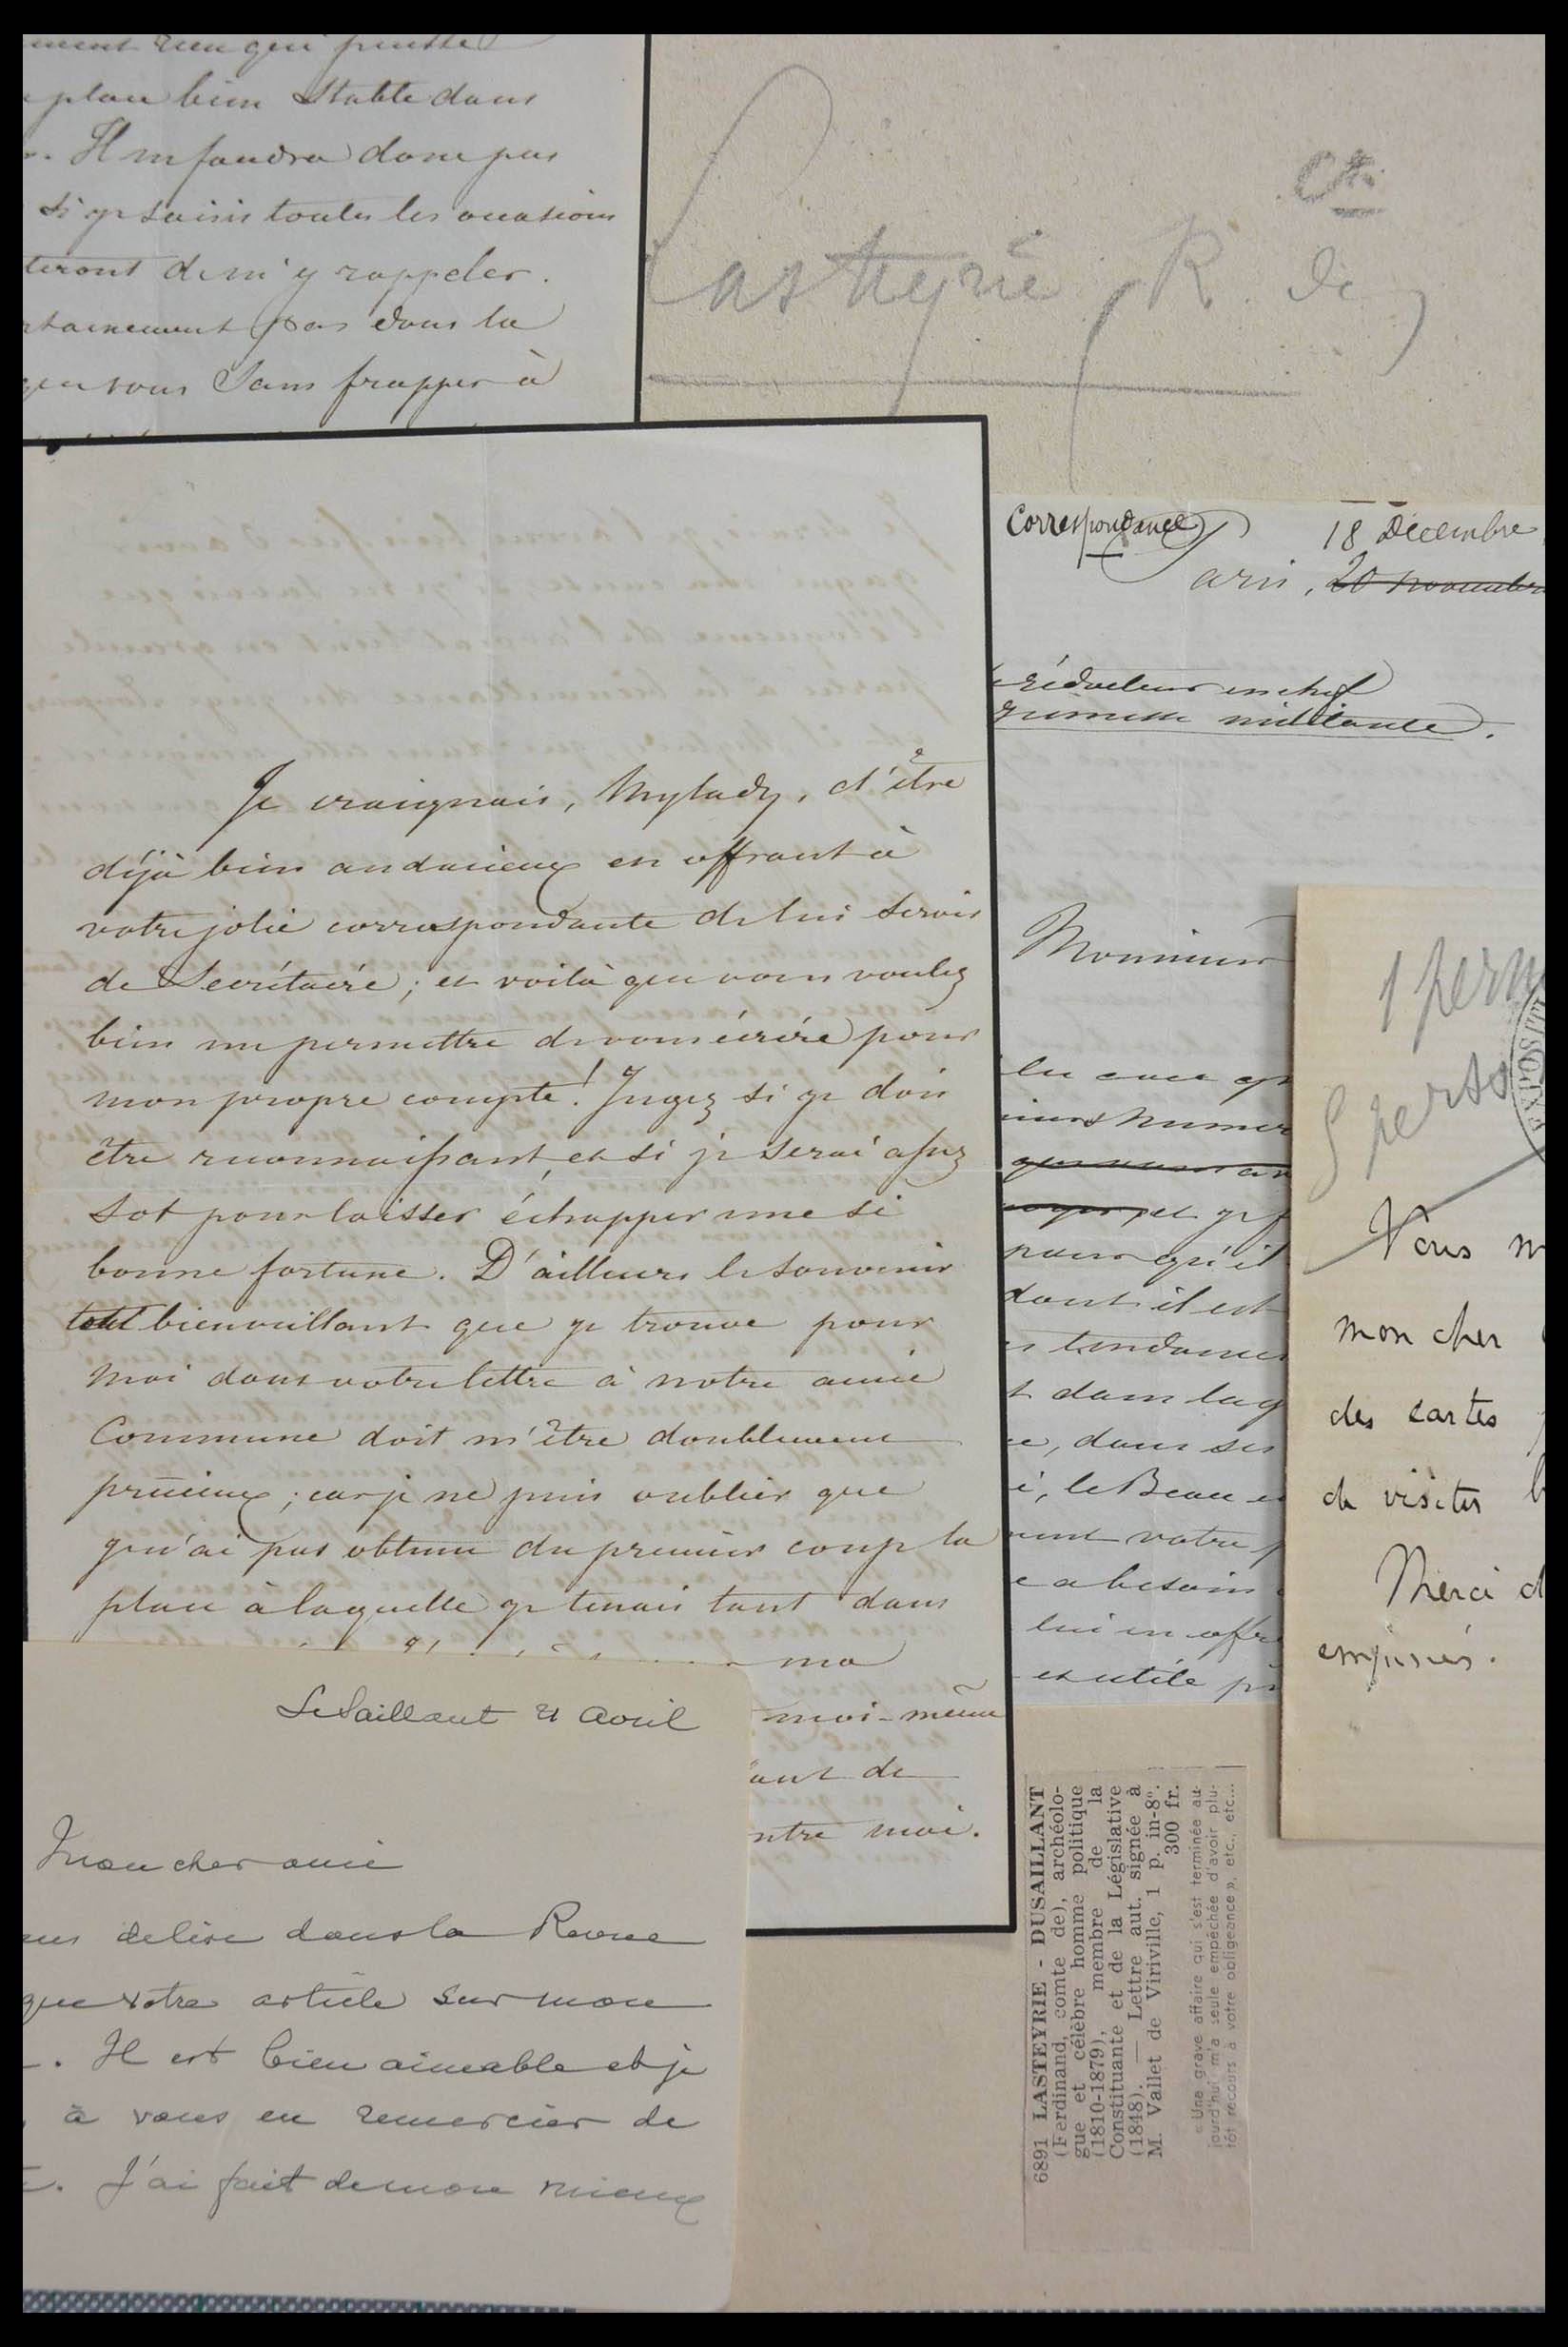 rien qui puisse
place bien stable dans
Il me faudra donc pas
si je saisis toutes les occasions
teront de m'y rappeler.
rtainement pas dans la
vous sans frapper à
Lasteyrie (R. de)
Correspondance
18 Décembre
Paris, 20 novembre
rédacteur en chef
militante.
Monsieur
Je craignais, Mylady, d'être
déjà bien audacieux en offrant à
votre jolie correspondante de lui servir
de Secrétaire ; et voilà que vous voulez
bien me permettre de vous écrire pour
mon propre compte ! Jugez si je dois
être reconnaissant, et si je serai assez
sot pour laisser échapper une si
bonne fortune. D'ailleurs le souvenir
tout bienveillant que je trouve pour
moi dans votre lettre à notre amie
Commune doit m'être doublement
précieux ; car je ne puis oublier que
je n'ai pas obtenu du premier coup la
place à laquelle je tenais tant dans
ma
moi-même
ant de
ntre moi.
numér
et je
qu'il
dont il est
tendances
t dans la
e, dans ses
i, le Beau
votre
e a besoin
lui en offr
et utile
1 perm
5 perso
Vous m
mon cher
des cartes
de visites
Merci d
empressés.
Le Saillant 21 avril
Mon cher ami
de lire dans la Revue
que votre article sur mon
. Il est bien aimable et je
à vous en remercier de
. J'ai fait de mon mieux
6891 LASTEYRIE - DUSAILLANT
(Ferdinand, comte de), archéolo-
gue et célèbre homme politique
(1810-1879), membre de la
Constituante et de la Législative
(1848). — Lettre aut. signée à
M. Vallet de Viriville, 1 p. in-8°.
300 fr.
« Une grave affaire qui s'est terminée au-
jourd'hui m'a seule empêchée d'avoir plu-
tôt recours à votre obligeance », etc., etc...